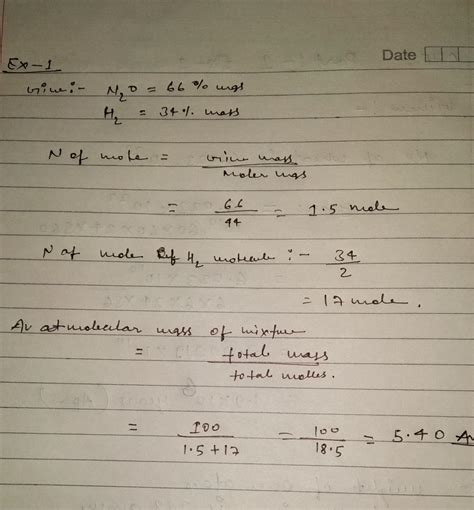 Date
Ex-1
Given:- N₂O = 66% mass
H₂ = 34% mass
N of mole = given mass / Moler mass
= 66/44 = 1.5 mole
N of mole of H₂ molecule :- 34/2
= 17 mole.
Av atmolecular mass of mixture
= total mass / total molles.
= 100/1.5+17 = 100/18.5 = 5.40 A